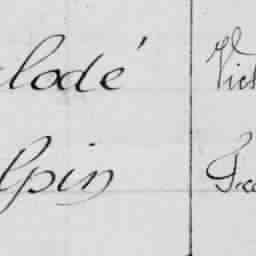 lodé Vict
lpin Fra